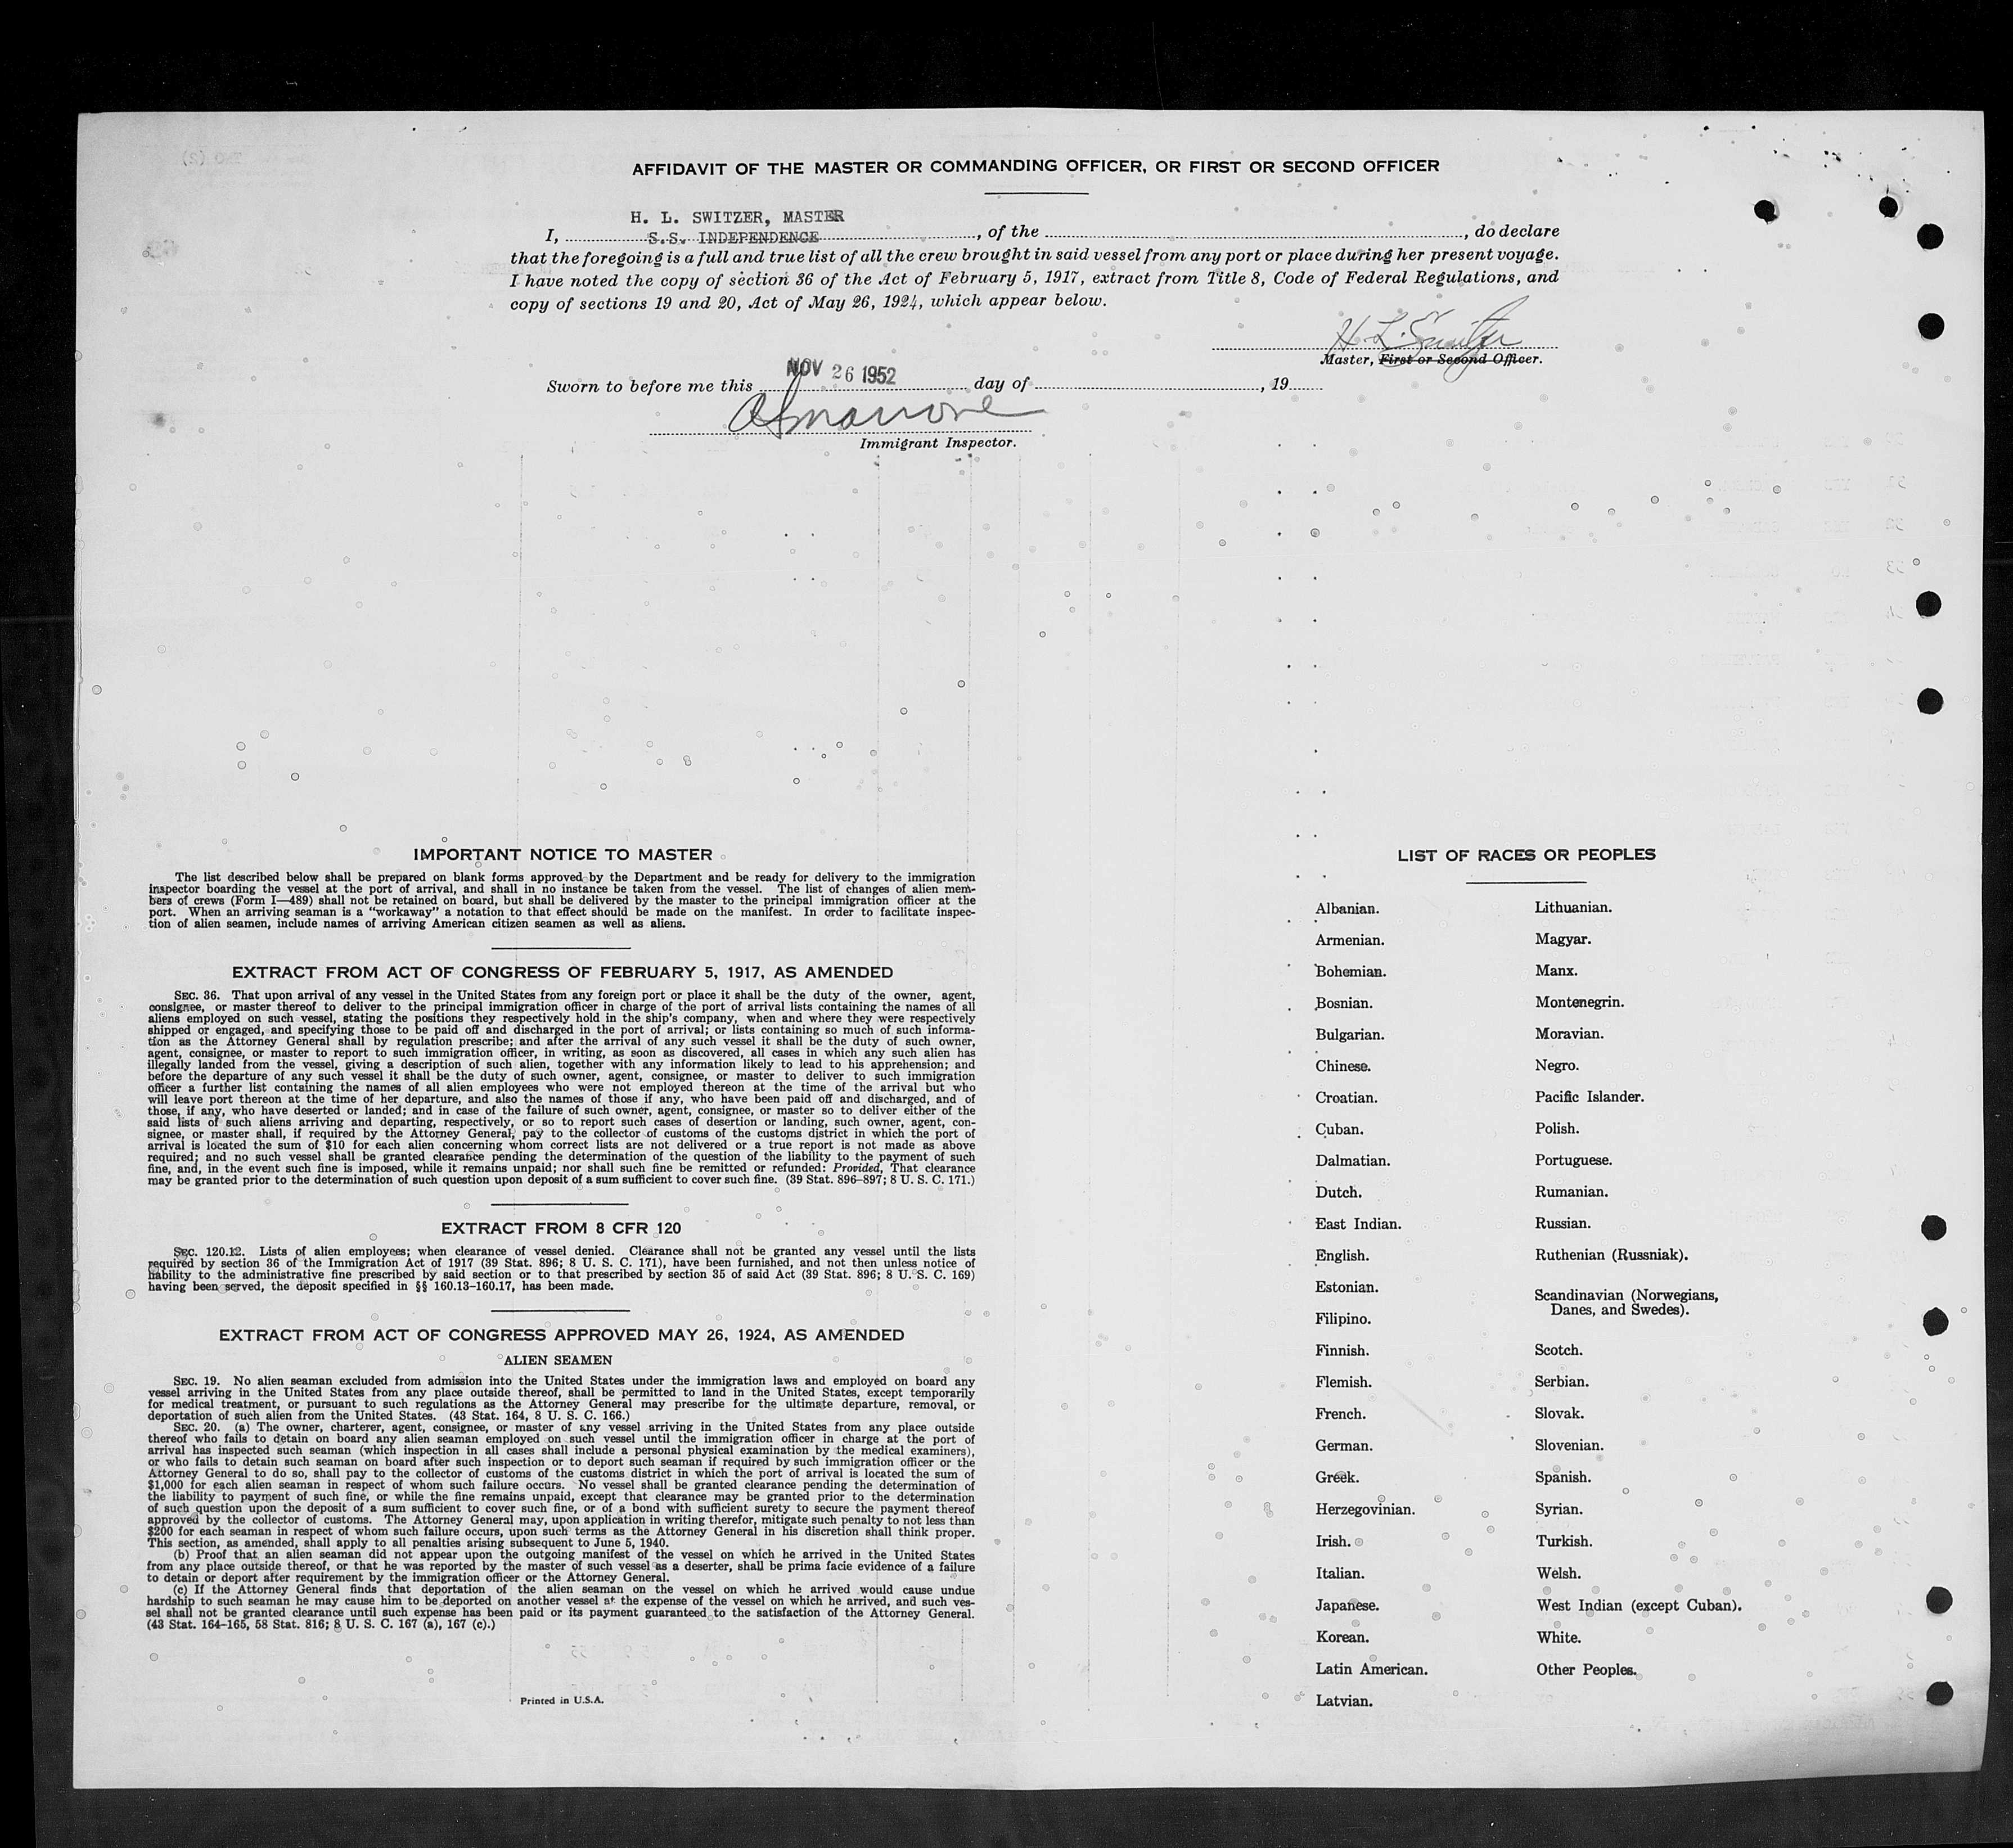 AFFIDAVIT OF THE MASTER OR COMMANDING OFFICER, OR FIRST OR SECOND OFFICER
H. L. SWITZER, MASTER
I, S.S. INDEPENDENCE, of the , do declare
that the foregoing is a full and true list of all the crew brought in said vessel from any port or place during her present voyage.
I have noted the copy of section 36 of the Act of February 5, 1917, extract from Title 8, Code of Federal Regulations, and
copy of sections 19 and 20, Act of May 26, 1924, which appear below.
H L Switzer
Master, First or Second Officer.
Sworn to before me this NOV 26 1952 day of , 19
Immigrant Inspector.
IMPORTANT NOTICE TO MASTER
The list described below shall be prepared on blank forms approved by the Department and be ready for delivery to the immigration
inspector boarding the vessel at the port of arrival, and shall in no instance be taken from the vessel. The list of changes of alien mem-
bers of crews (Form I—489) shall not be retained on board, but shall be delivered by the master to the principal immigration officer at the
port. When an arriving seaman is a "workaway" a notation to that effect should be made on the manifest. In order to facilitate inspec-
tion of alien seamen, include names of arriving American citizen seamen as well as aliens.
EXTRACT FROM ACT OF CONGRESS OF FEBRUARY 5, 1917, AS AMENDED
SEC. 36. That upon arrival of any vessel in the United States from any foreign port or place it shall be the duty of the owner, agent,
consignee, or master thereof to deliver to the principal immigration officer in charge of the port of arrival lists containing the names of all
aliens employed on such vessel, stating the positions they respectively hold in the ship's company, when and where they were respectively
shipped or engaged, and specifying those to be paid off and discharged in the port of arrival; or lists containing so much of such informa-
tion as the Attorney General shall by regulation prescribe; and after the arrival of any such vessel it shall be the duty of such owner,
agent, consignee, or master to report to such immigration officer, in writing, as soon as discovered, all cases in which any such alien has
illegally landed from the vessel, giving a description of such alien, together with any information likely to lead to his apprehension; and
before the departure of any such vessel it shall be the duty of such owner, agent, consignee, or master to deliver to such immigration
officer a further list containing the names of all alien employees who were not employed thereon at the time of the arrival but who
will leave port thereon at the time of her departure, and also the names of those if any, who have been paid off and discharged, and of
those, if any, who have deserted or landed; and in case of the failure of such owner, agent, consignee, or master so to deliver either of the
said lists of such aliens arriving and departing, respectively, or so to report such cases of desertion or landing, such owner, agent, con-
signee, or master shall, if required by the Attorney General, pay to the collector of customs of the customs district in which the port of
arrival is located the sum of $10 for each alien concerning whom correct lists are not delivered or a true report is not made as above
required; and no such vessel shall be granted clearance pending the determination of the question of the liability to the payment of such
fine, and, in the event such fine is imposed, while it remains unpaid; nor shall such fine be remitted or refunded: Provided, That clearance
may be granted prior to the determination of such question upon deposit of a sum sufficient to cover such fine. (39 Stat. 896–897; 8 U. S. C. 171.)
EXTRACT FROM 8 CFR 120
SEC. 120.12. Lists of alien employees; when clearance of vessel denied. Clearance shall not be granted any vessel until the lists
required by section 36 of the Immigration Act of 1917 (39 Stat. 896; 8 U. S. C. 171), have been furnished, and not then unless notice of
liability to the administrative fine prescribed by said section or to that prescribed by section 35 of said Act (39 Stat. 896; 8 U. S. C. 169)
having been served, the deposit specified in §§ 160.13–160.17, has been made.
EXTRACT FROM ACT OF CONGRESS APPROVED MAY 26, 1924, AS AMENDED
ALIEN SEAMEN
SEC. 19. No alien seaman excluded from admission into the United States under the immigration laws and employed on board any
vessel arriving in the United States from any place outside thereof, shall be permitted to land in the United States, except temporarily
for medical treatment, or pursuant to such regulations as the Attorney General may prescribe for the ultimate departure, removal, or
deportation of such alien from the United States. (43 Stat. 164, 8 U. S. C. 166.)
SEC. 20. (a) The owner, charterer, agent, consignee, or master of any vessel arriving in the United States from any place outside
thereof who fails to detain on board any alien seaman employed on such vessel until the immigration officer in charge at the port of
arrival has inspected such seaman (which inspection in all cases shall include a personal physical examination by the medical examiners),
or who fails to detain such seaman on board after such inspection or to deport such seaman if required by such immigration officer or the
Attorney General to do so, shall pay to the collector of customs of the customs district in which the port of arrival is located the sum of
$1,000 for each alien seaman in respect of whom such failure occurs. No vessel shall be granted clearance pending the determination of
the liability to payment of such fine, or while the fine remains unpaid, except that clearance may be granted prior to the determination
of such question upon the deposit of a sum sufficient to cover such fine, or of a bond with sufficient surety to secure the payment thereof
approved by the collector of customs. The Attorney General may, upon application in writing therefor, mitigate such penalty to not less than
$200 for each seaman in respect of whom such failure occurs, upon such terms as the Attorney General in his discretion shall think proper.
This section, as amended, shall apply to all penalties arising subsequent to June 5, 1940.
(b) Proof that an alien seaman did not appear upon the outgoing manifest of the vessel on which he arrived in the United States
from any place outside thereof, or that he was reported by the master of such vessel as a deserter, shall be prima facie evidence of a failure
to detain or deport after requirement by the immigration officer or the Attorney General.
(c) If the Attorney General finds that deportation of the alien seaman on the vessel on which he arrived would cause undue
hardship to such seaman he may cause him to be deported on another vessel at the expense of the vessel on which he arrived, and such ves-
sel shall not be granted clearance until such expense has been paid or its payment guaranteed to the satisfaction of the Attorney General.
(43 Stat. 164–165, 58 Stat. 816; 8 U. S. C. 167 (a), 167 (c).)
Printed in U.S.A.
LIST OF RACES OR PEOPLES
Albanian.
Armenian.
Bohemian.
Bosnian.
Bulgarian.
Chinese.
Croatian.
Cuban.
Dalmatian.
Dutch.
East Indian.
English.
Estonian.
Filipino.
Finnish.
Flemish.
French.
German.
Greek.
Herzegovinian.
Irish.
Italian.
Japanese.
Korean.
Latin American.
Latvian.
Lithuanian.
Magyar.
Manx.
Montenegrin.
Moravian.
Negro.
Pacific Islander.
Polish.
Portuguese.
Rumanian.
Russian.
Ruthenian (Russniak).
Scandinavian (Norwegians,
Danes, and Swedes).
Scotch.
Serbian.
Slovak.
Slovenian.
Spanish.
Syrian.
Turkish.
Welsh.
West Indian (except Cuban).
White.
Other Peoples.